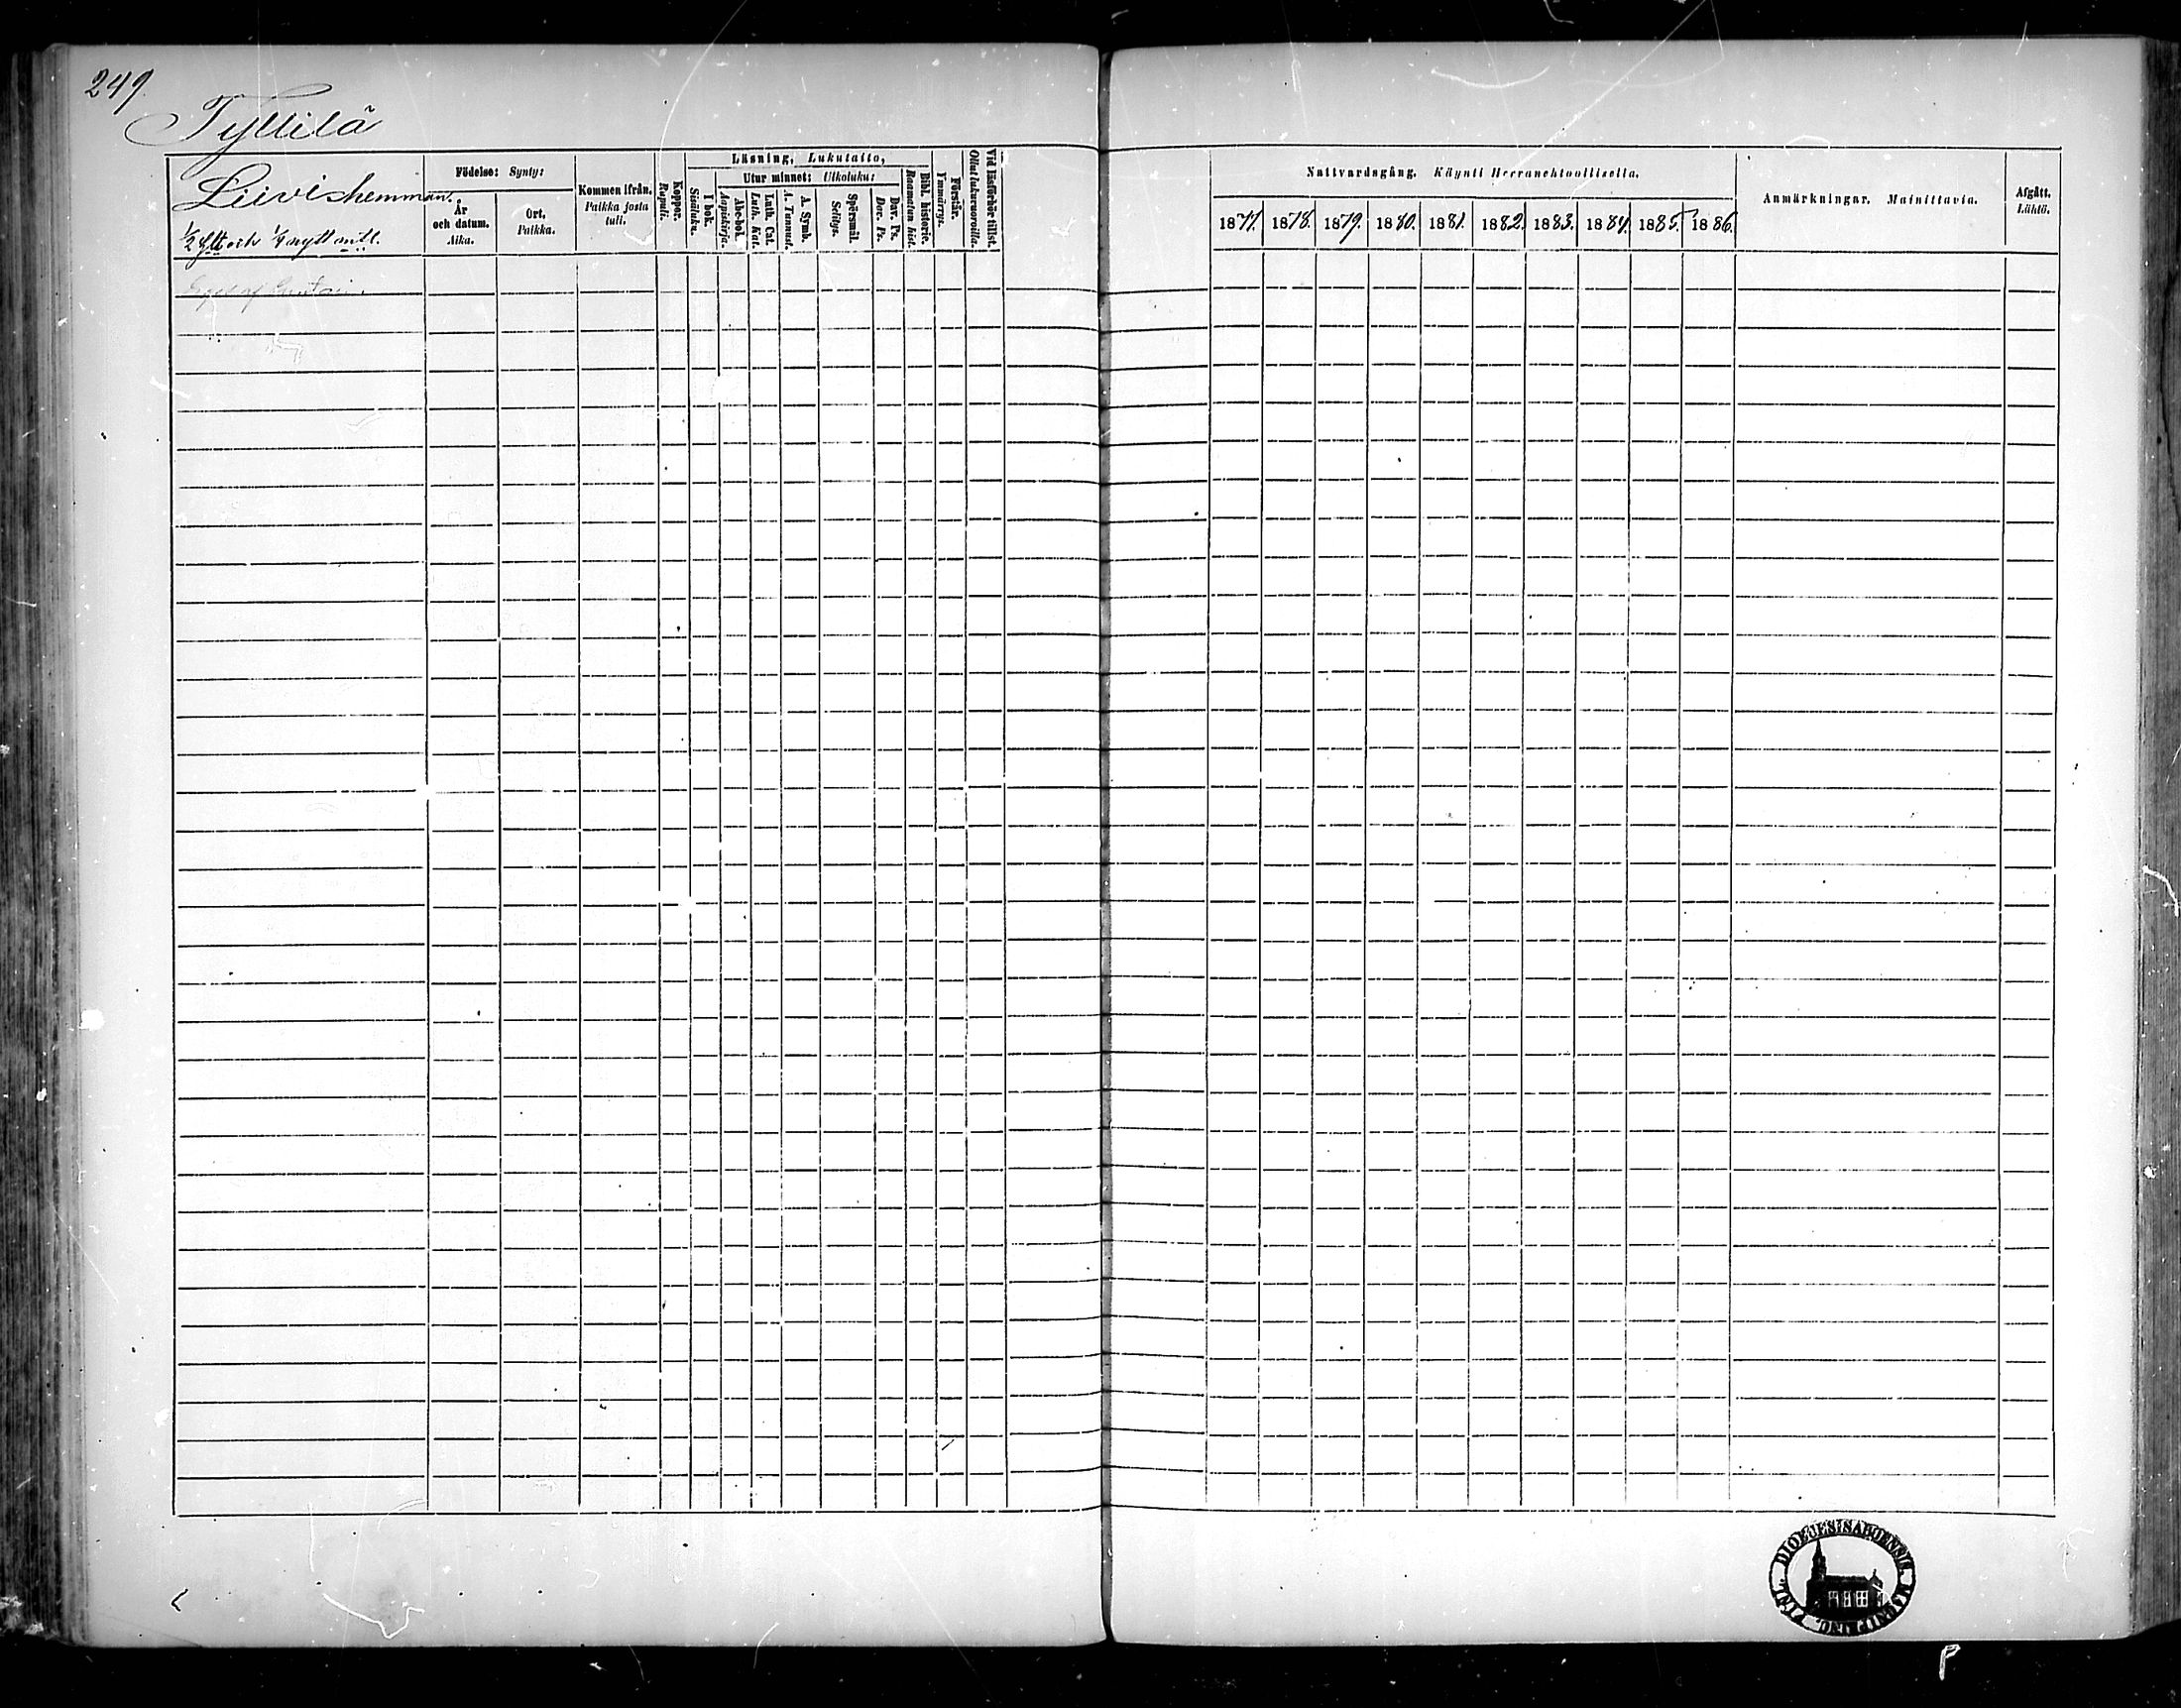 249.
Tyllilä
Liivis hemman.
1/2 gltt och 1/4 nytt mtl.
Födelse: Synty:
År och datum. Aika.
Ort, Paikka.
Kommen ifrån. Paikka josta tuli.
Koppor. Rupuli.
Läsning, Lukutaito,
I bok. Sisäluku.
Utur minnet: Ulkoluku:
Abc-bok. Aapiskirja.
Luth. Cat. Luth. Kat.
A. Symb. A. Tunnust.
Spörsmål. Selitys.
Dav. Ps. Dav. Ps.
Bibl. historie. Raamatun hist.
Förstår. Ymmärrys.
Vid läsförhör tillst. Ollut lukuvuorolla.
Nattvardsgång. Käynti Herranehtoollisella.
1877. 1878. 1879. 1880. 1881. 1882. 1883. 1884. 1885. 1886.
Anmärkningar. Mainittavia.
Afgått. Lähtö.
af